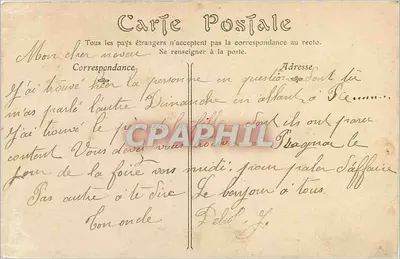 Carte Postale
Tous les pays étrangers n'acceptent pas la correspondance au recto.
Se renseigner à la poste.
Correspondance
Adresse
Mon cher neveu
J'ai trouvé hier la personne en question dont tu
m'as parlé l'autre Dimanche en allant à Pie.......
J'ai trouvé le dont ils ont paru
content Vous devez vous le
jour de la foire vers midi pour parler d'affaire
Pas autre à te dire Le bonjour à tous
Ton oncle
CPAPHIL